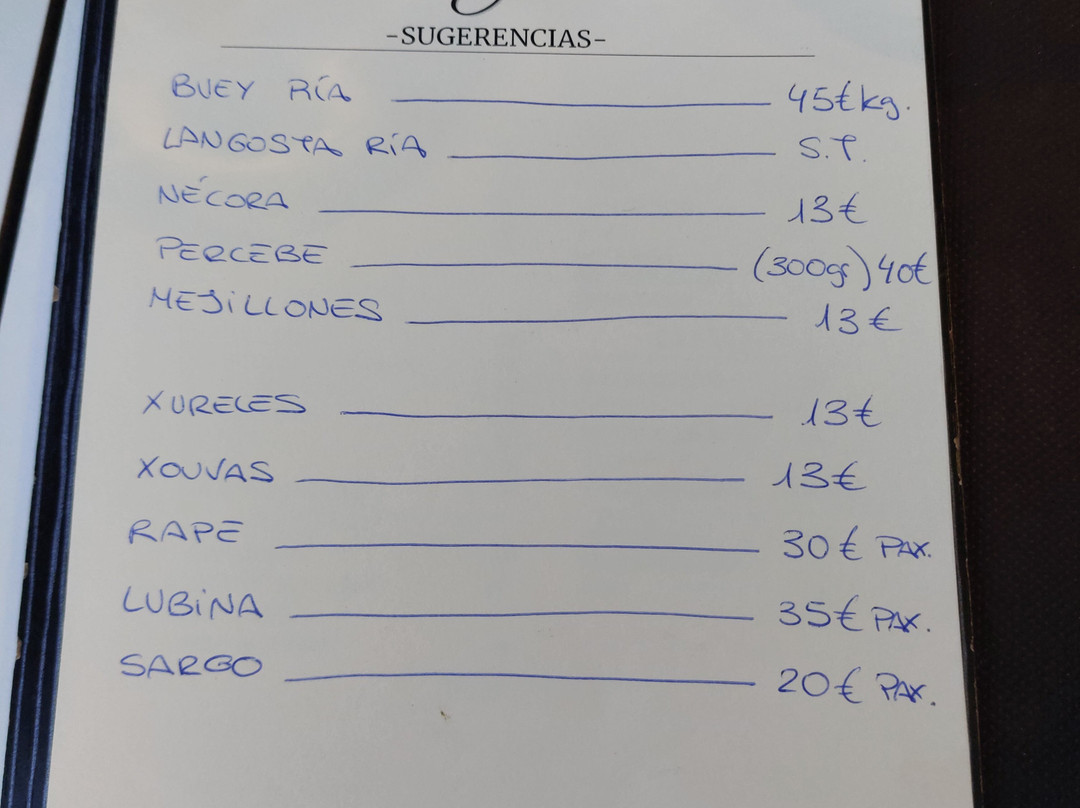 -SUGERENCIAS-
BUEY RÍA 45€kg.
LANGOSTA RÍA S.P.
NÉCORA 13€
PERCEBE (300gs) 40€
MEJILLONES 13€
XURELES 13€
XOUVAS 13€
RAPE 30€ PAX.
LUBINA 35€ PAX.
SARGO 20€ PAX.